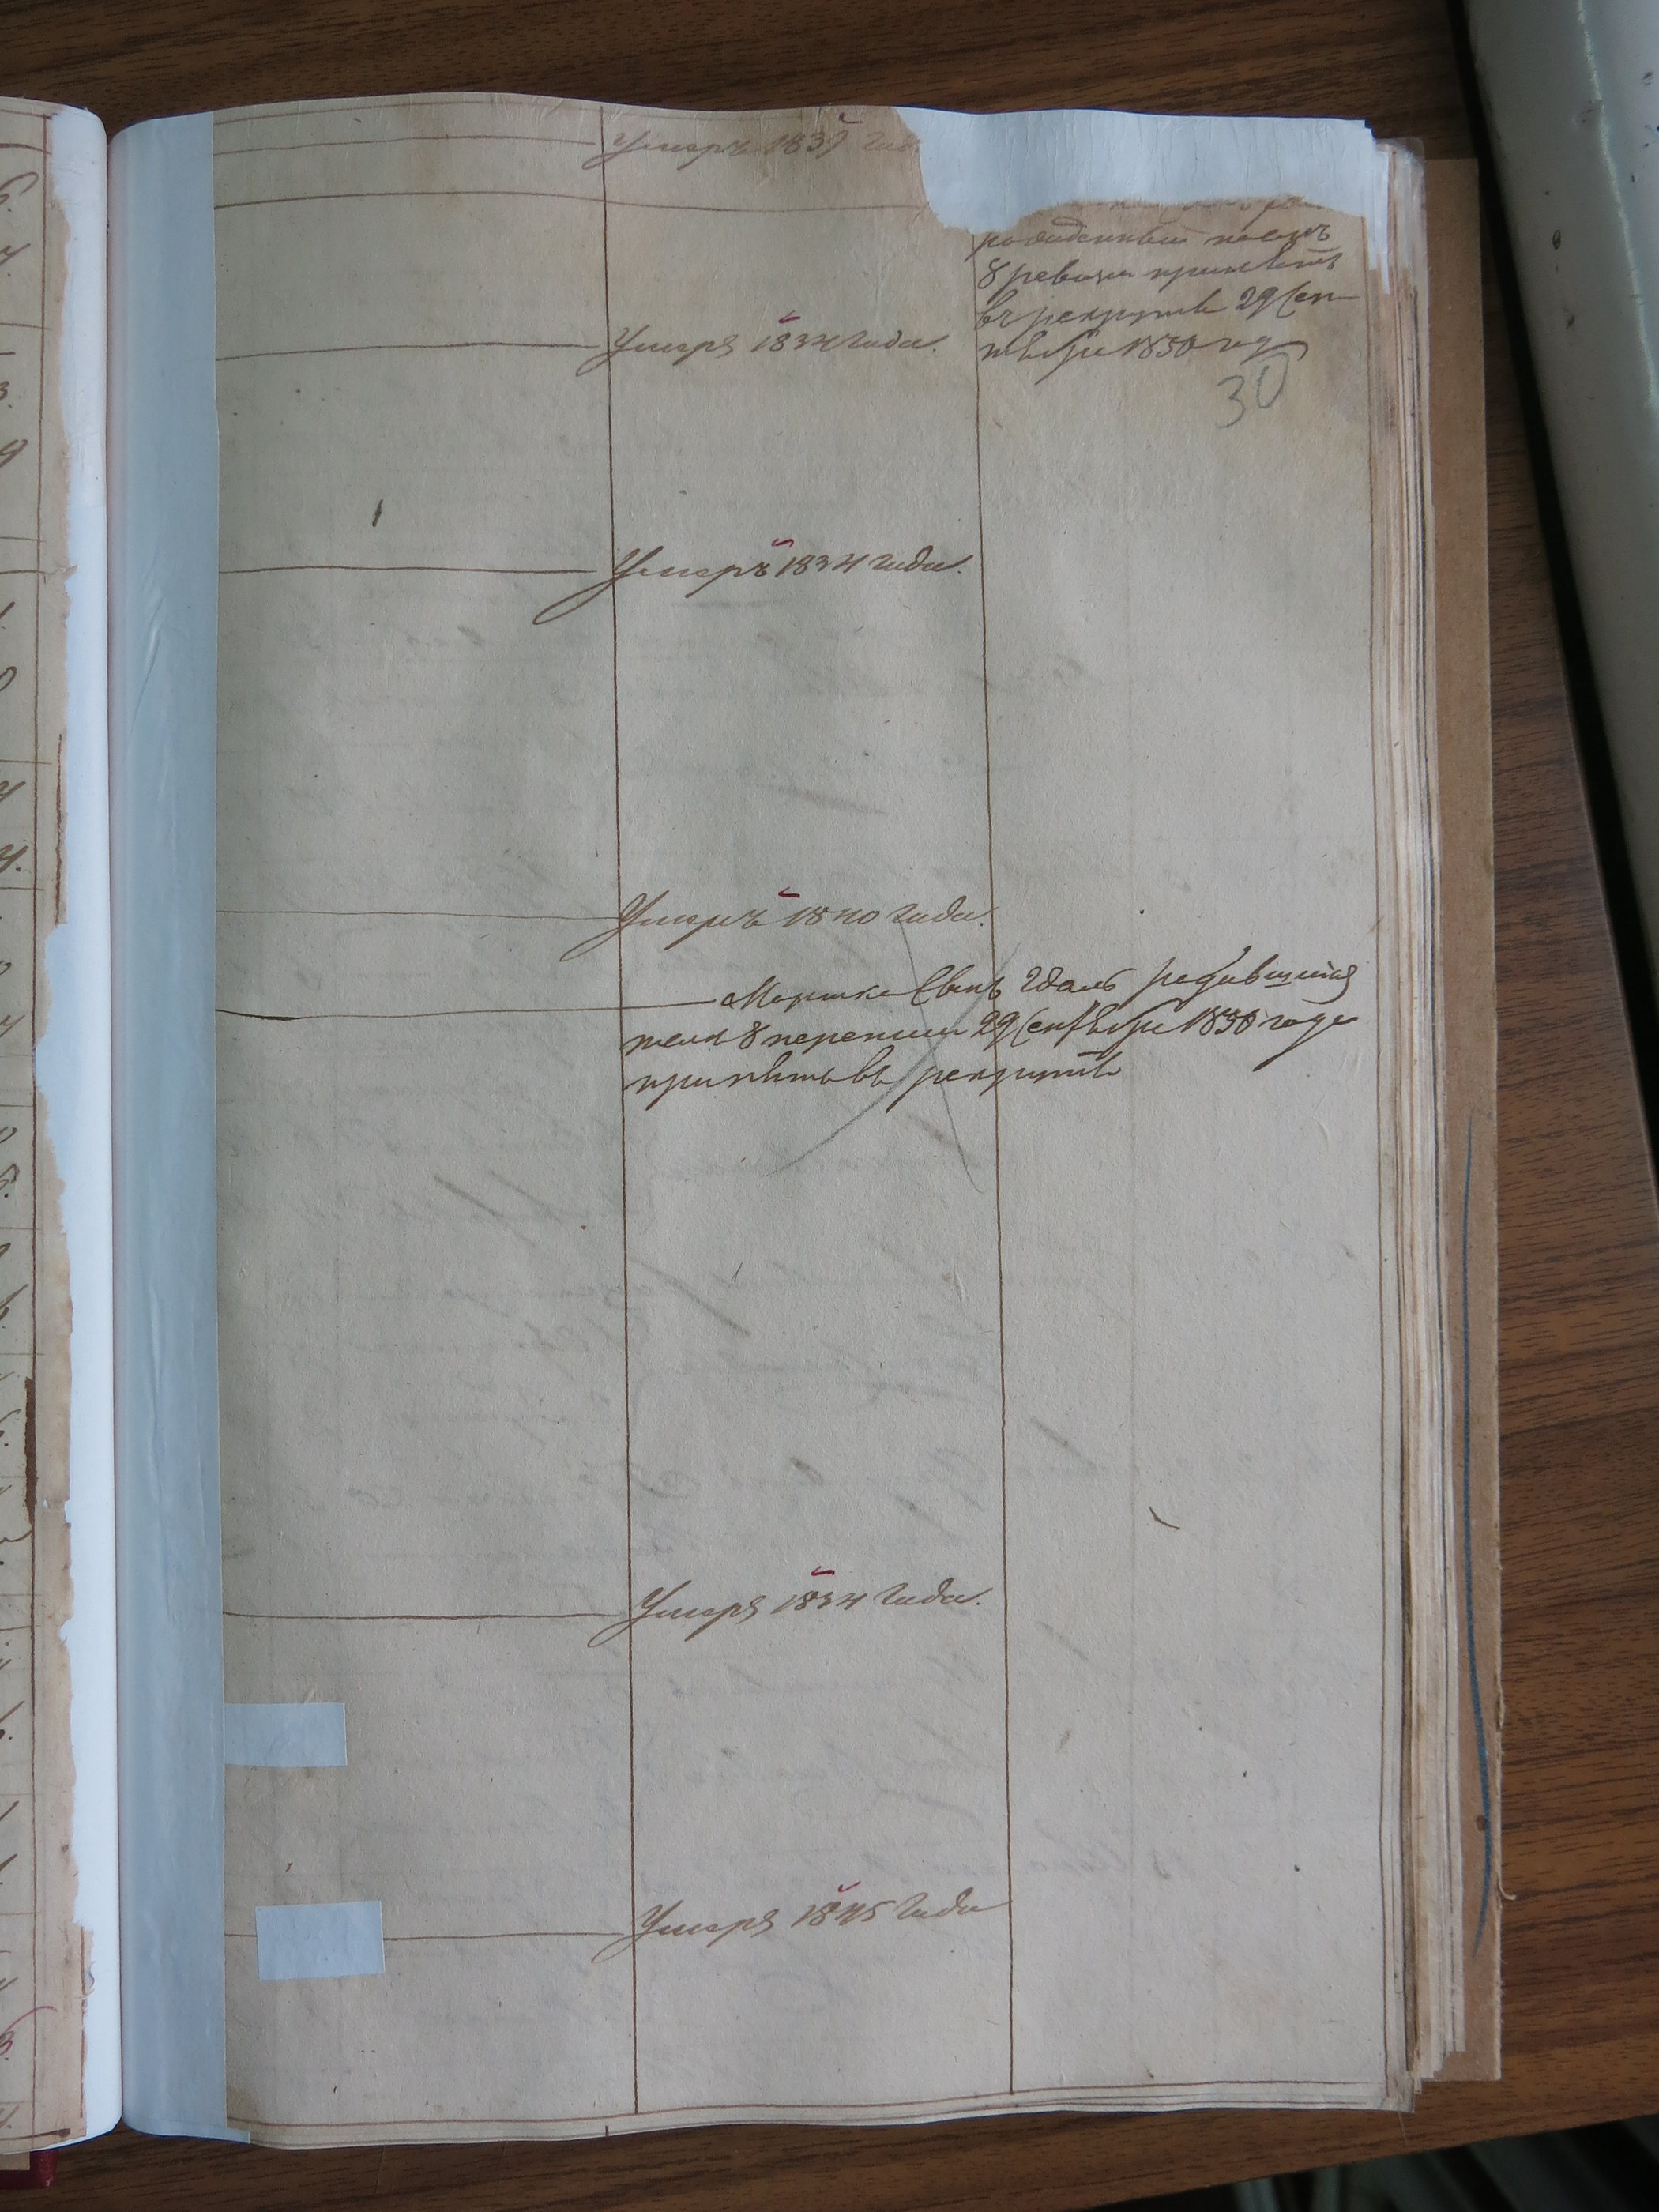 Умеръ 1839 год
рожденный послѣ
8 ревизіи принятъ
въ рекруты 29 Сен-
тября 1850 год
Умеръ 1834 года.
30
Умеръ 1834 года.
Умеръ 1840 года.
сынъ родившійся
послѣ 8 переписи 29 Сентября 1850 года
принятъ въ рекруты
Умеръ 1834 года.
Умеръ 1845 года